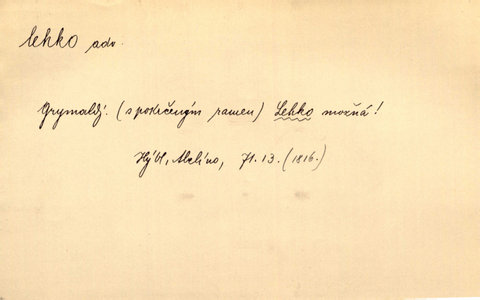 lehko adv.
Grymaldý. (s pokrčeným ramen) Lehko možná!
Hýbl, 71. 13. (1816.)